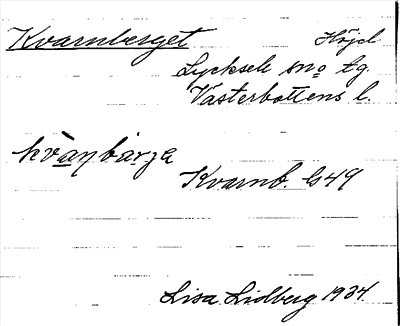 Kvarnberget Höjd
Lycksele sno tg.
Västerbottens l.
kvàn̥bár̥ja
Kvarnb. G49
Lisa Lidberg 1934.